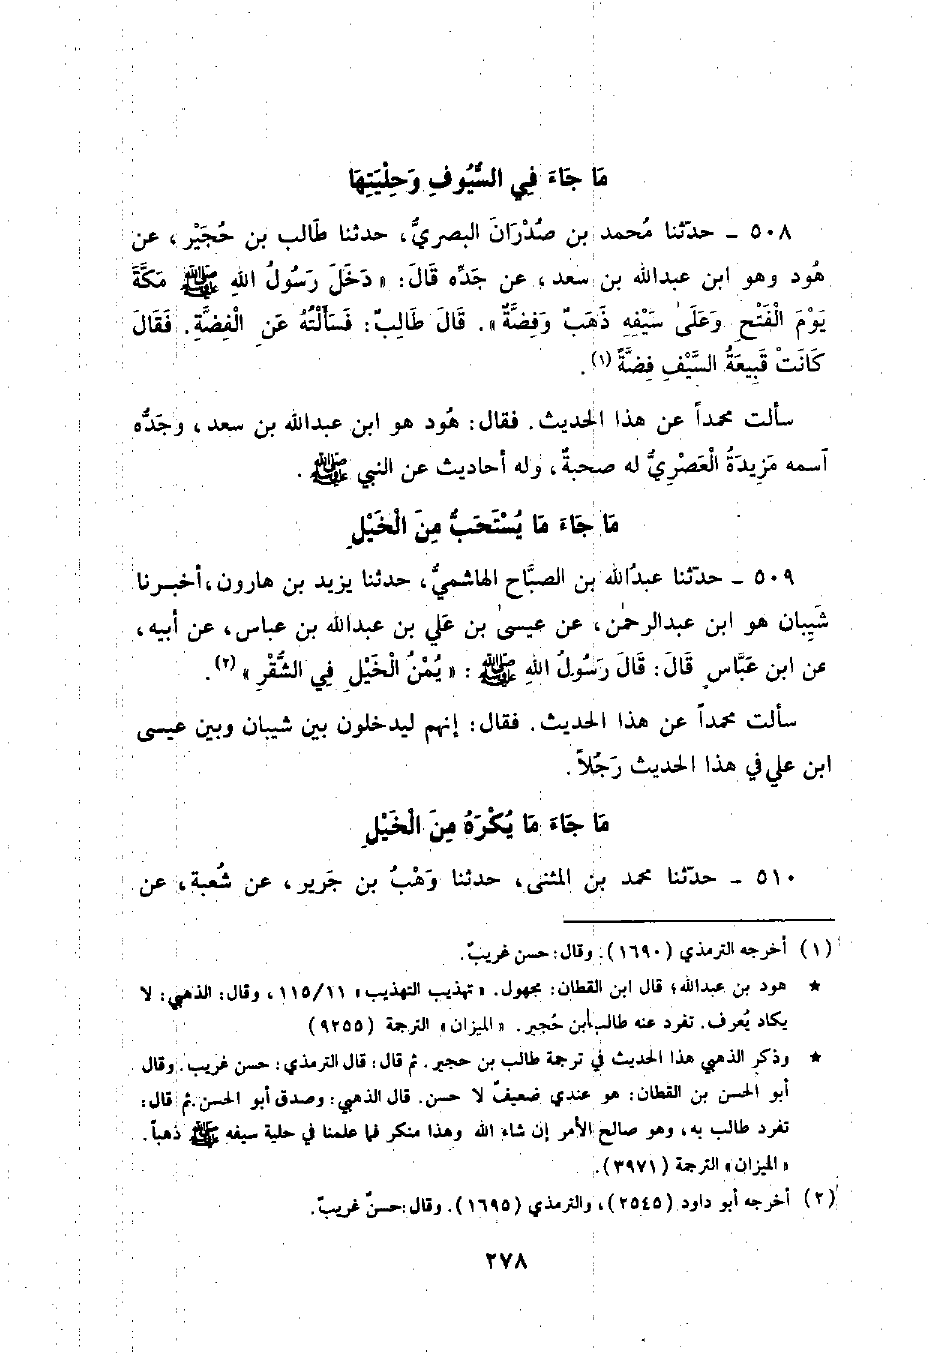 مَا جَاءَ فِي السُّيُوفِ وَحِلْيَتِهَا
٥٠٨ ـ حدّثنا مُحمد بن صُدْرَانَ البصريُّ، حدثنا طَالب بن حُجَيْر، عن
هُود وهو ابن عبدالله بن سعد، عن جَدِّه قَالَ: « دَخَلَ رَسُولُ اللهِ ﷺ مَكَّةَ
يَوْمَ الْفَتْحِ وَعَلَىٰ سَيْفِهِ ذَهَبٌ وَفِضَّةٌ ». قَالَ طَالِبٌ: فَسَأَلْتُهُ عَنِ الْفِضَّةِ. فَقَالَ
كَانَتْ قَبِيعَةُ السَّيْفِ فِضَّةً (١).
سألت محمداً عن هذا الحديث. فقال: هُود هو ابن عبدالله بن سعد، وجَدُّه
آسمه مَزِيدَةُ الْعَصْرِيُّ له صحبةٌ، وله أحاديث عن النبي ﷺ.
مَا جَاءَ مَا يُسْتَحَبُّ مِنَ الْخَيْلِ
٥٠٩ ـ حدّثنا عبدُالله بن الصبَّاح الهاشميُّ، حدثنا يزيد بن هارون، أخبـرنا
شَيبان هو ابن عبدالرحمٰن، عن عيسىٰ بن عَلي بن عبدالله بن عباس، عن أبيه،
عن ابن عَبَّاسٍ قَالَ: قَالَ رَسُولُ اللهِ ﷺ: « يُمْنُ الْخَيْلِ فِي الشُّقْرِ » (٢).
سألت محمداً عن هذا الحديث. فقال: إنهم ليدخلون بين شيبان وبين عيسى
ابن علي في هذا الحديث رَجُلاً.
مَا جَاءَ مَا يُكْرَهُ مِنَ الْخَيْلِ
٥١٠ ـ حدّثنا محمد بن المثنى، حدثنا وَهْبُ بن جَرير، عن شُعبة، عن
(١) أخرجه الترمذي (١٦٩٠). وقال: حسن غريبٌ.
★ هود بن عبدالله؛ قال ابن القطان: مجهول. « تهذيب التهذيب » ١١/١١٥، وقال: الذهبي: لا
يكاد يُعرف. تفرد عنه طالب ابن حُجير. « الميزان » الترجمة (٩٢٥٥)
★ وذكر الذهبي هذا الحديث في ترجمة طالب بن حجير. ثم قال: قال الترمذي: حسن غريب. وقال
أبو الحسن بن القطان: هو عندي ضعيفٌ لا حسن. قال الذهبي: وصدق أبو الحسن. ثم قال:
تفرد طالب به، وهو صالح الأمر إن شاء الله وهذا منكر فما علمنا في حلية سيفه ﷺ ذهباً.
« الميزان » الترجمة (٣٩٧١).
(٢) أخرجه أبو داود (٢٥٤٥)، والترمذي (١٦٩٥). وقال: حسنٌ غريبٌ.
٢٧٨